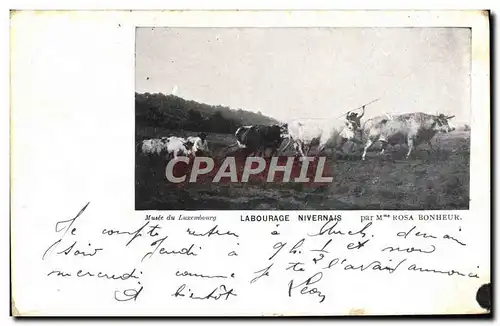 CPARAMA
Musée du Luxembourg LABOURAGE NIVERNAIS par Mme ROSA BONHEUR.
Je compte à demain
soir Jeudi à 9h ½ et non
mercredi comme je te l'avais annoncé
A bientôt Léon